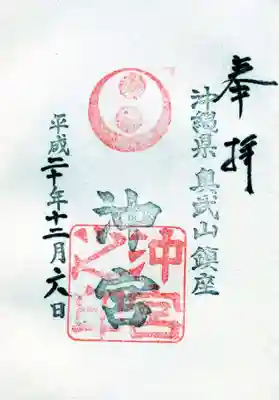 奉拝
沖縄県奥武山鎮座
沖宮
平成二十年十二月六日